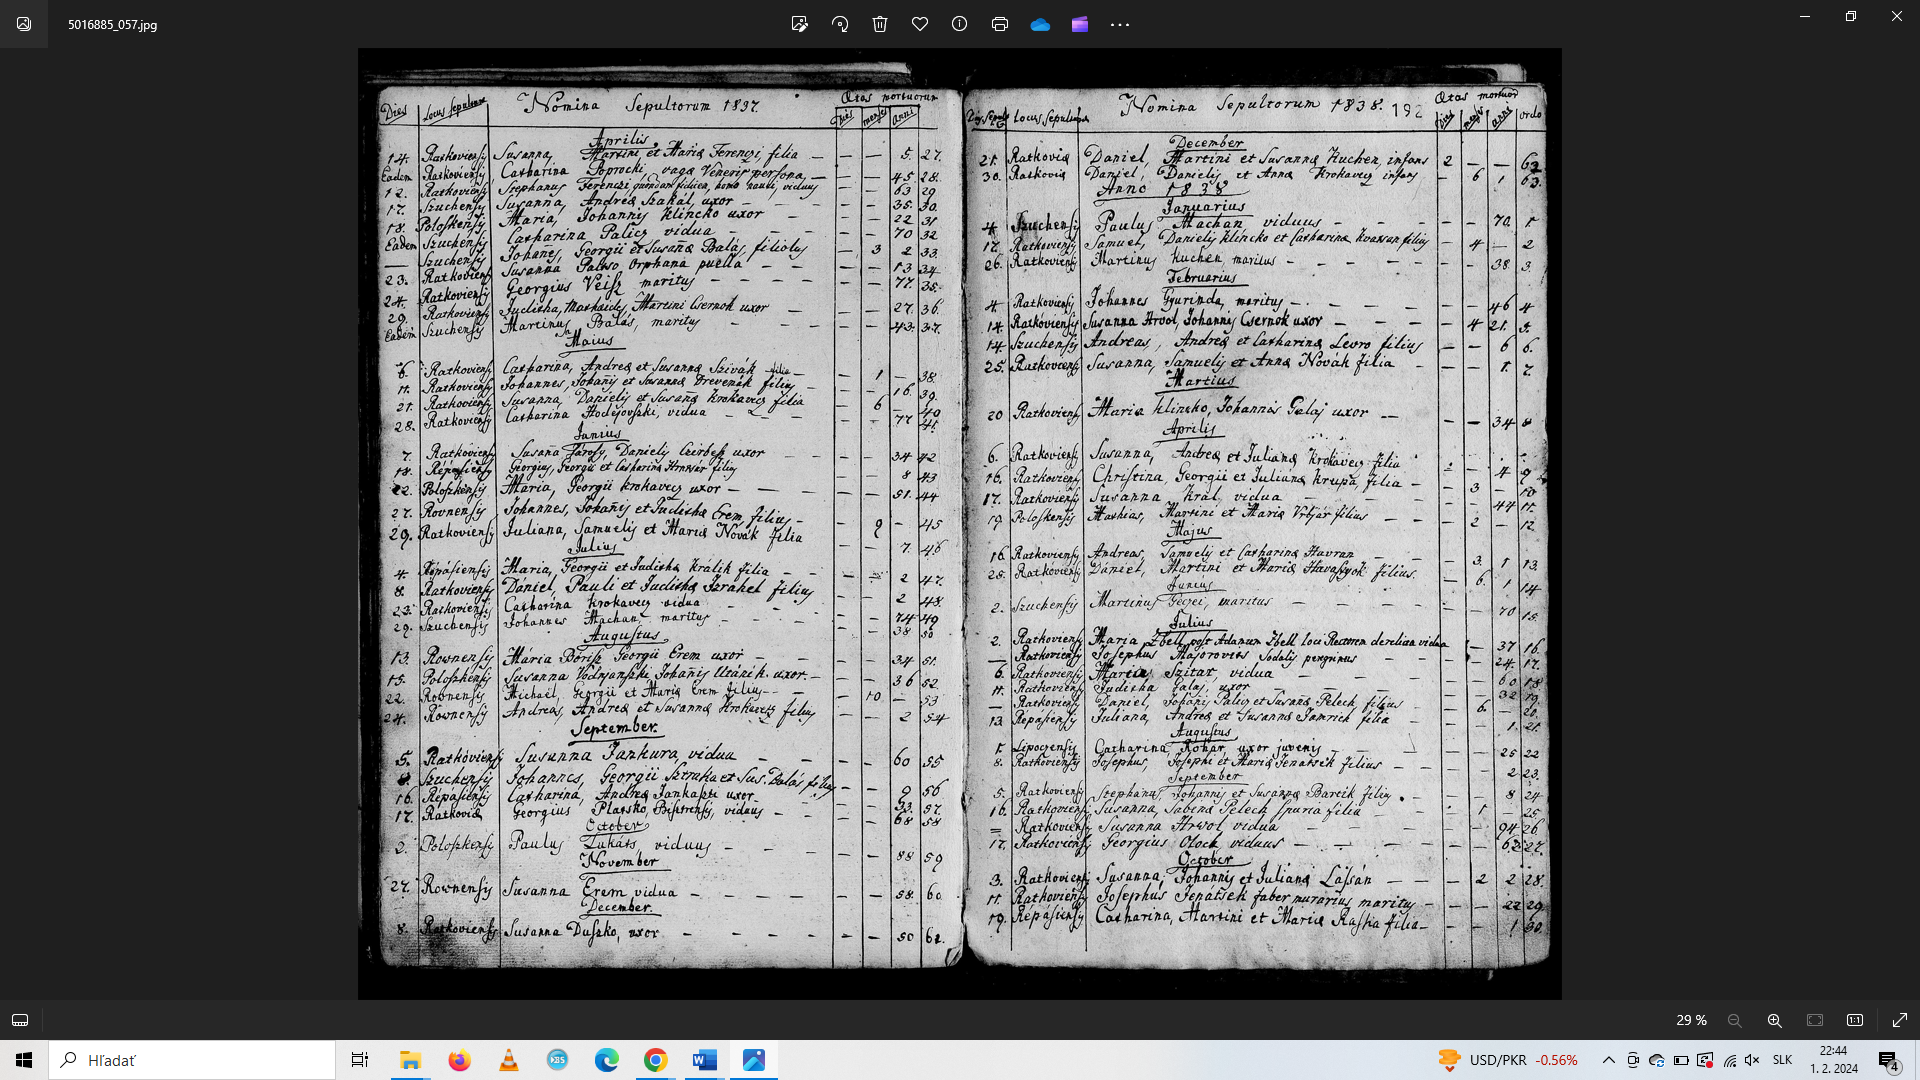 5016885_057.jpg
Nomina Sepultorum 1837
Dies Locus sepulturae Ætas mortuorum
Dies menses Anni
Aprilis
14. Ratkoviensis Susanna, Martini et Mariæ Ferenczi filia — — 5. 27.
Eadem Ratkoviensis Catharina Poprocki, vaga Veneris persona — — 45 28.
12. Ratkoviensis Stephanus Ferenczi viduus 63 29
17. Szuchensis Susanna, Andreæ Szakal, uxor — — 35. 30.
18. Poloskensis Maria, Johannis Klincko uxor — — 22 31
Eadem Szuchensis Catharina Palicz vidua — — 70 32
— Szuchensis Johanes, Georgii et Susañæ Balás filiolus — 3 2 33.
23. Ratkoviensis Susanna Orphana puella — — 13 34
24. Ratkoviensis Georgius Veisz maritus — — 77. 35.
29. Ratkoviensis Juditha, Martini Csernok uxor — — 27. 36.
Eadem Szuchensis Martinus Balás, maritus — — 43. 37.
Maius
6. Ratkoviensis Catharina, Andreæ et Susannæ Szivák filia — 1 — 38.
11. Ratkoviensis Johannes, Johañis et Susannæ Drevenák filius — — 16. 39.
21. Ratkoviensis Susanna, Danielis et Susañæ Krokavecz filia — 6 — 40
28. Ratkoviensis Catharina Hodejovszki, vidua — — 77 41.
Junius
7. Ratkoviensis Susaña Danielis uxor — — 34 42
18. Répásiensis Georgius, Georgii et Catharinæ filius — — 8 43
22. Poloskensis Maria, Georgii Krokavecz uxor — — 51. 44
27. Rovnensis Johannes, Johañis et Judithæ Erem filius — 9 — 45
29. Ratkoviensis Juliana, Samuelis et Mariæ Novák filia — — 7. 46
Julius
4. Répásiensis Maria, Georgii et Judithæ Králik filia — — 2 47.
8. Ratkoviensis Dániel, Pauli et Judithæ Izrahel filius — — 2 48.
23. Ratkoviensis Catharina Krokavecz vidua — — 74 49
29. Szuchensis Johannes Machan, maritus — — 38 50
Augustus
13. Rownensis Maria Georgii Erem uxor — — 34 51.
15. Poloskensis Susanna Johañis uxor — — 36 52
22. Rownensis Michael, Georgii et Mariæ Erem filius — 10 — 53
24. Rownensis Andreas, Andreæ et Susannæ Krokavecz filius — — 2 54
September.
5. Ratkoviensis Susanna Jankura, vidua — — 60 55
Szuchensis Johannes, Georgii et Sus. Balás filius — — 9 56
16. Répásiensis Catharina, Andreæ uxor — — 33. 57.
17. Ratkoviæ Georgius viduus — — 68 58
October
2. Poloskensis Paulus Lukáts, viduus — — 88 59
November
27. Rownensis Susanna Erem vidua — — 58. 60.
December.
8. Ratkoviensis Susanna Duszko, uxor — — 50 61.
Nomina Sepultorum 1838. 192
Locus Sepulturæ Ætas mortuor
Dies mensis anni ordo
December
21. Ratkoviæ Daniel, Martini et Susannæ Kuchen, infans 2 — — 62
30. Ratkoviæ Daniel, Danielis et Annæ Krokavecz infans — 6 1 63.
Anno 1838
Januarius
4 Szuchensis Paulus Machan viduus — — 70. 1.
17. Ratkoviensis Samuel, Danielis Klincko et Catharinæ filius — 4 — 2
26. Ratkoviensis Martinus Kuchen maritus — — 38. 3.
Februarius
4. Ratkoviensis Johannes Gyurinda, maritus — — 46 4
14. Ratkoviensis Susanna Hrvol, Johannis Csernok uxor — 4 21. 5.
14. Szuchensis Andreas, Andreæ et Catharinæ Levro filius — — 6 6.
25. Ratkoviensis Susanna, Samuelis et Annæ Novák filia — — 1. 7.
Martius
20 Ratkoviensis Maria Klincko, Johannis Galaj uxor — — 34 8
Aprilis
6. Ratkoviensis Susanna, Andreæ et Julianæ Krokavecz filia — — 4 9
16. Ratkoviensis Christina, Georgii et Julianæ Krupa, filia — 3 — 10
17. Ratkoviensis Susanna Král vidua — — 44 11.
19 Poloskensis Mathias, Martini et Mariæ Vrbjár filius — 2 — 12.
Majus
16. Ratkoviensis Andreas, Samuelis et Catharinæ Havran — 3. 1 13.
25. Ratkoviensis Dániel, Martini et Mariæ filius. — 6 1 14
Junius
2. Szuchensis Martinus Géczei, maritus — — 70 15.
Julius
2. Ratkoviensis Maria Zbell post Adamum Zbell loci Rectorem derelicta vidua — 37 16.
— Ratkoviensis Josephus Majorovits Sodalis peregrinus — — 24. 17.
6. Ratkoviensis Maria Szitar, vidua — — 60 18
11. Ratkoviensis Juditha Galaj, uxor — — 32 19.
— Ratkoviensis Daniel, Johañis Palicz et Susañæ Pelech filius — 6 — 20.
13. Répásiensis Juliana, Andreæ et Susannæ Jamrich filia — — 1. 21.
Augustus
1. Lipocensis Catharina Rohár, uxor juvenis — — 25 22
8. Ratkoviensis Josephus, Josephi et Mariæ Jenatsek filius — — 2 23.
September
5. Ratkoviensis Stephanus, Johannis et Susannæ Bartik filius — — 8 24
16. Ratkoviensis Susanna, Sabinæ Pelech spuria filia — 1 — 25
= Ratkoviensis Susanna Hrvol vidua — — 94 26
17. Ratkoviensis Georgius Oloch, viduus — — 62 27.
October
3. Ratkoviensis Susanna, Johannis et Julianæ Lassán — 2 2 28.
11. Ratkoviensis Josephus Jenátsek faber murarius maritus — 22 29.
19. Répásiensis Catharina, Martini et Mariæ filia — — 1 30.
29 %
Hľadať
USD/PKR -0.56%
SLK
22:44
1. 2. 2024
4